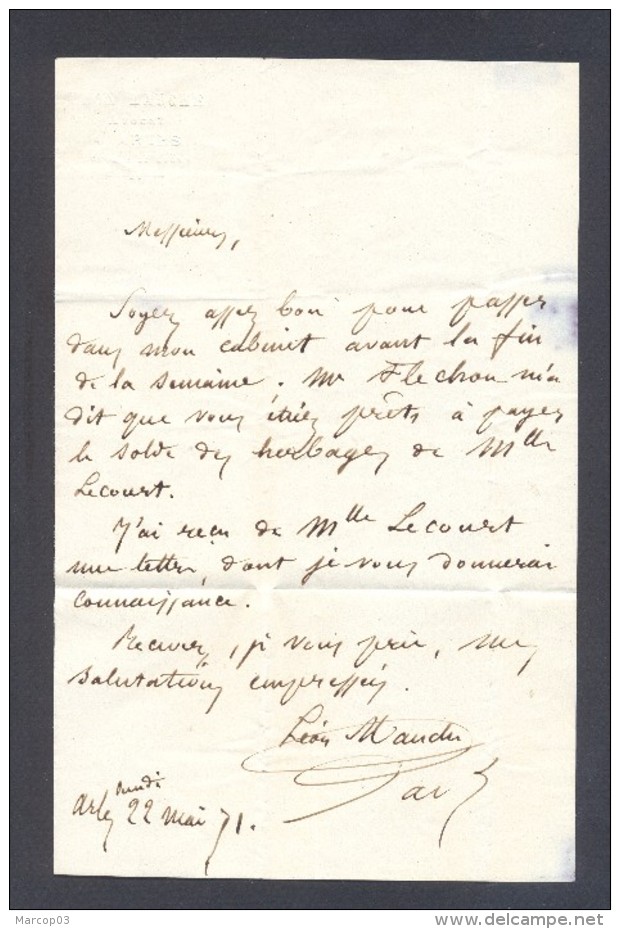 Messieurs,
Soyez assez bon pour passer
dans mon cabinet avant la fin
de la semaine. Mr Flechon m'a
dit que vous étiez prêts à payer
le solde des herbages de Mlle
Lecourt.
J'ai reçu de Mlle Lecourt
une lettre, dont je vous donnerai
connaissance.
Recevez, je vous prie, mes
salutations empressées.
Léon
lundi
Arles 22 mai 71.
Marcop03
www.delcampe.net